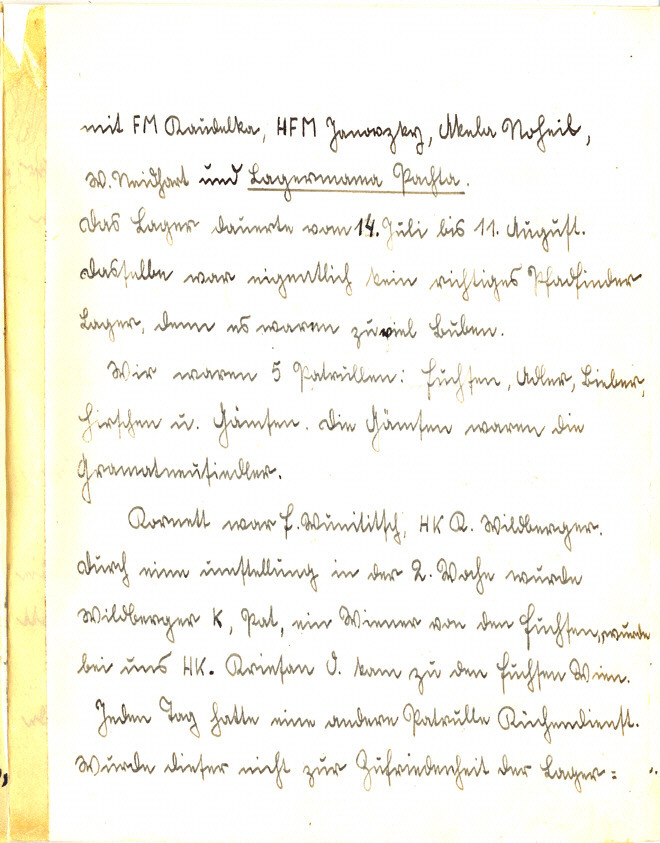 mit FM Raudelka, HFM Janowzky, Akela Noheil,
W. Neidhart und Lagermama Pachta.
Das Lager dauerte vom 14. Juli bis 11. August.
Dasselbe war eigentlich kein richtiges Pfadfinder
Lager, denn es waren zuviel Buben.
Wir waren 5 Patrullen: Füchsen, Adler, Bieber,
Hirschen u. Gämsen. Die Gämsen waren die
Gramatneusiedler.
Kornett war F. Wunilitsch, HK R. Wildberger.
Durch eine Umstellung in der 2. Woche wurde
Wildberger K, Pat, ein Wiener von den Füchsen, wurde
bei uns HK. Kriesan J. kam zu den Füchsen Wien.
Jeden Tag hatte eine andere Patrulle Küchendienst.
Wurde dieser nicht zur Zufriedenheit der Lager=